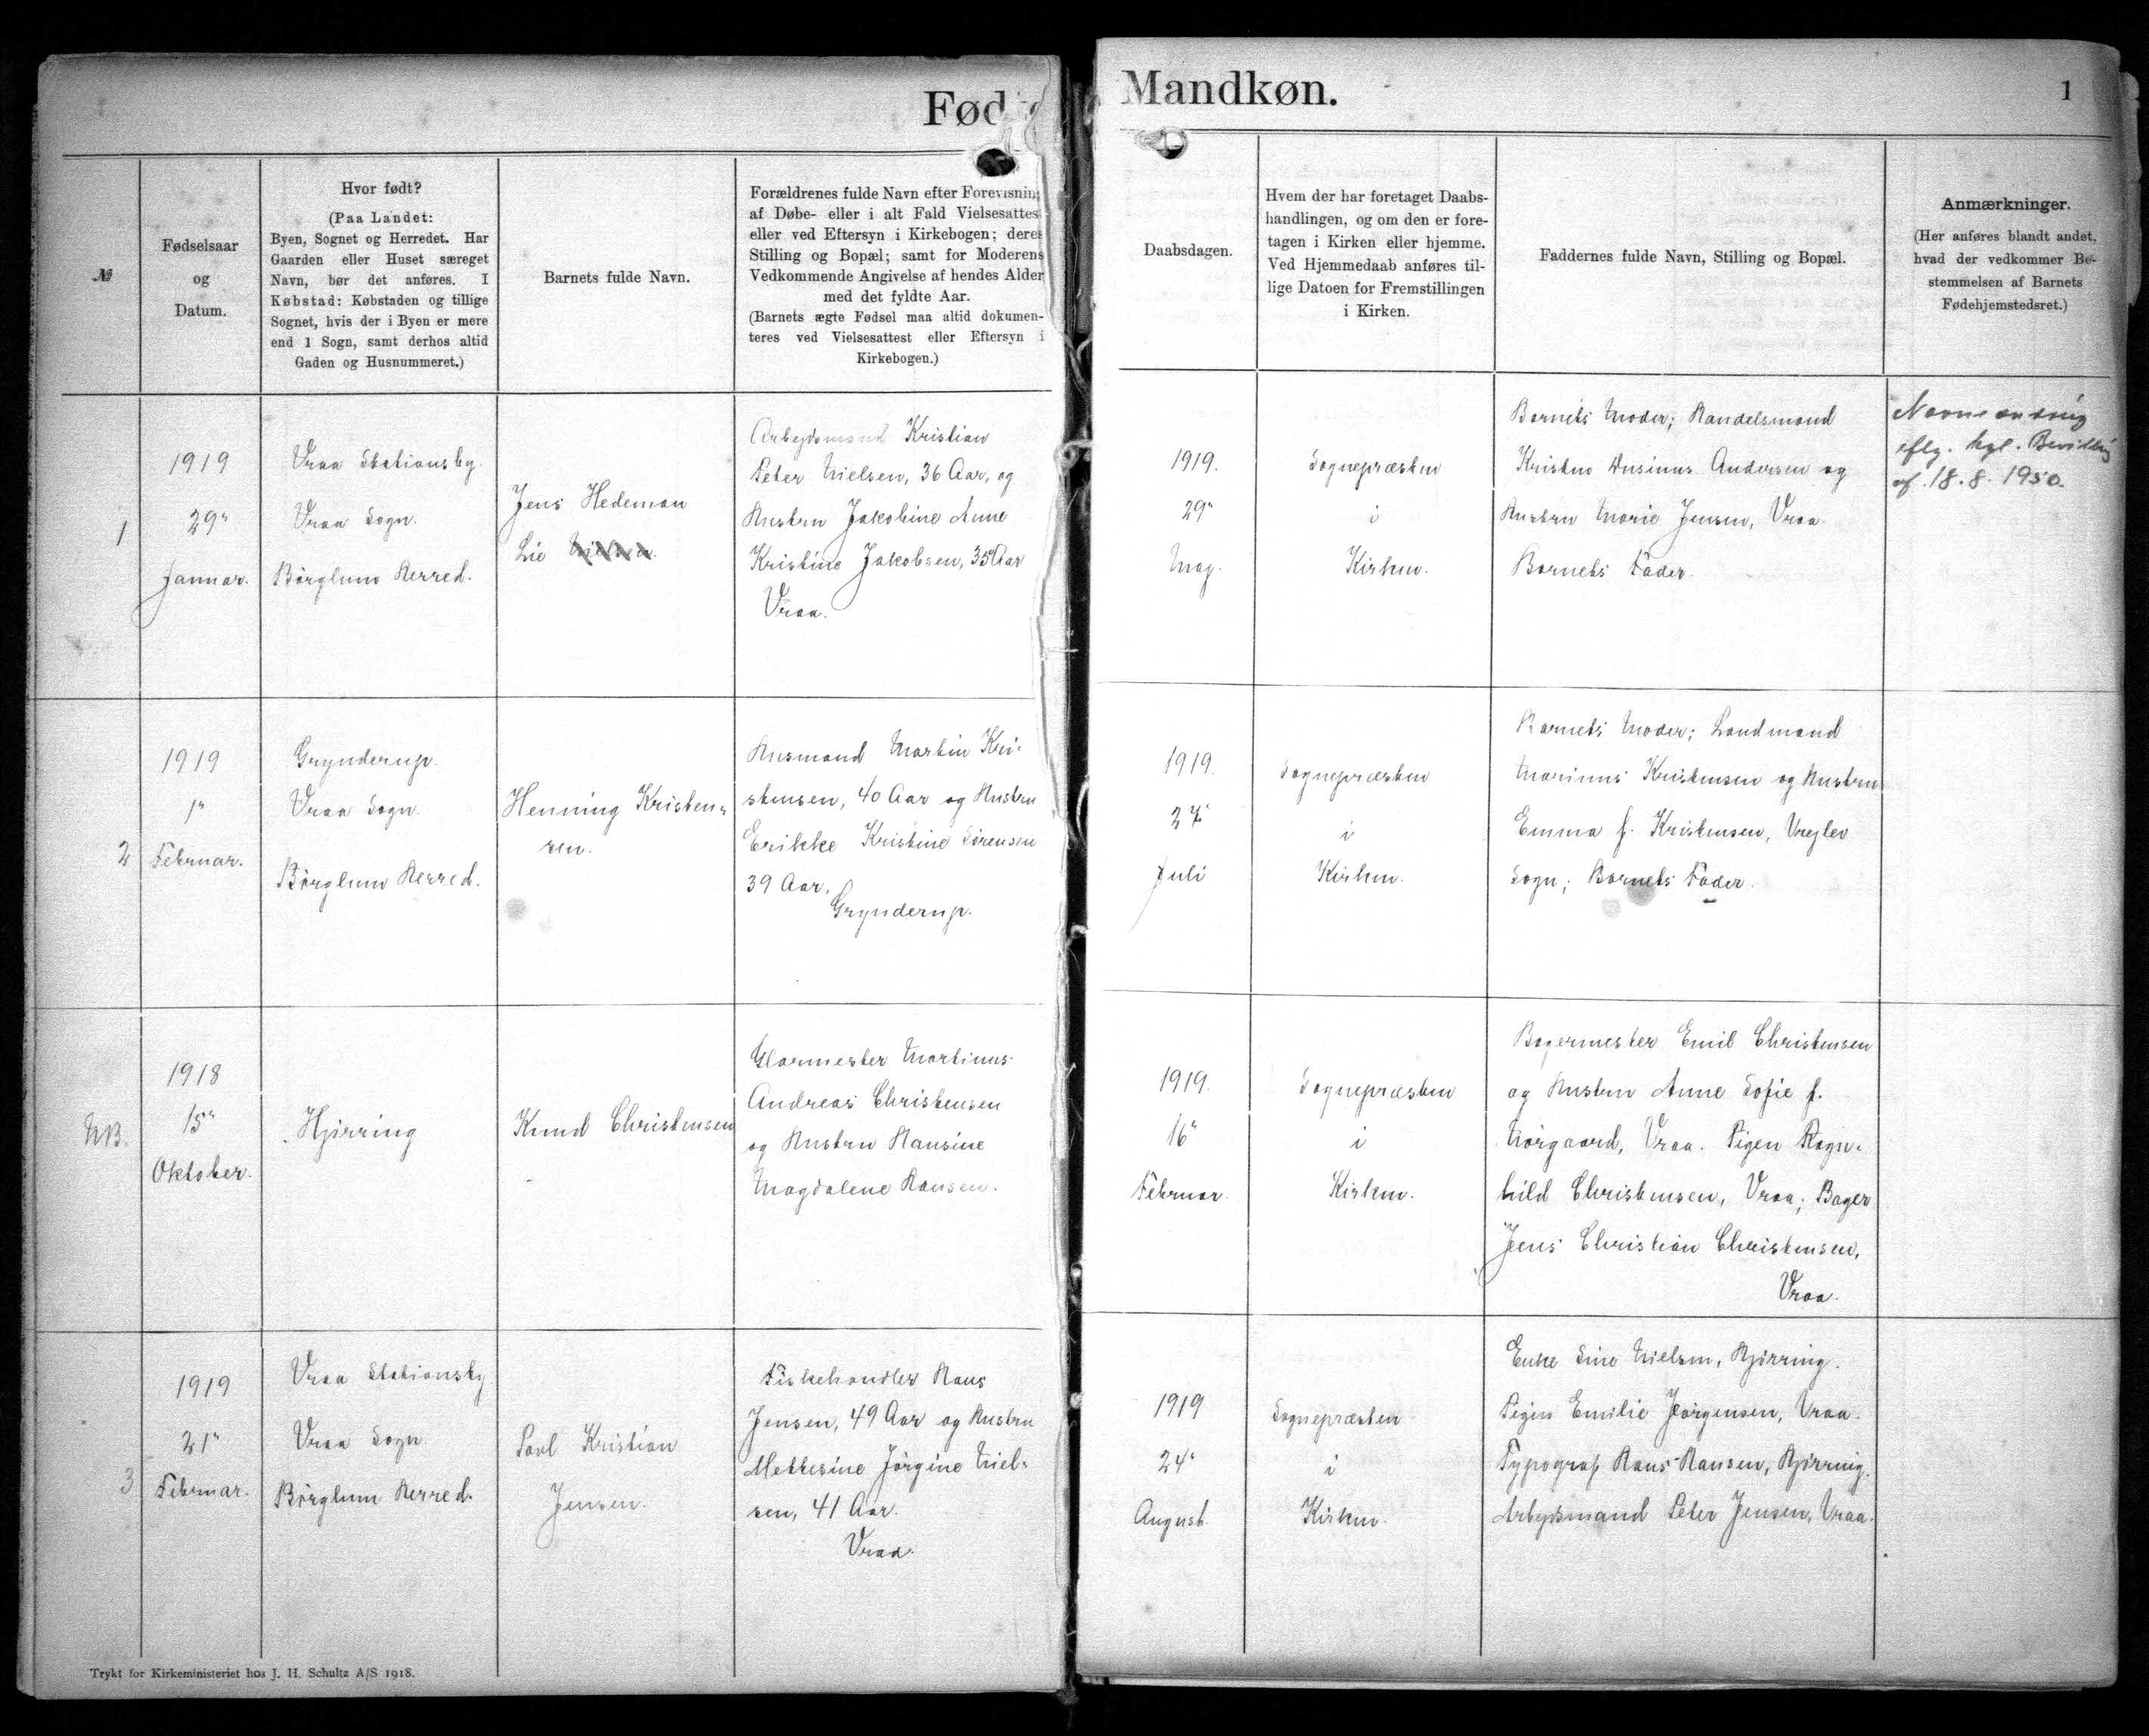 Fød
Mandkøn.
1
№
Fødselsaar
og
Datum.
Hvor født?
(Paa Landet:
Byen, Sognet og Herredet. Har
Gaarden eller Huset særeget
Navn, bør det anføres. I
Købstad: Købstaden og tillige
Sognet, hvis der i Byen er mere
end 1 Sogn, samt derhos altid
Gaden og Husnummeret.)
Barnets fulde Navn.
Forældrenes fulde Navn efter Forevisning
af Døbe- eller i alt Fald Vielsesattes
eller ved Eftersyn i Kirkebogen; deres
Stilling og Bopæl; samt for Moderens
Vedkommende Angivelse af hendes Alder
med det fyldte Aar.
(Barnets ægte Fødsel maa altid dokumen-
teres ved Vielsesattest eller Eftersyn i
Kirkebogen.)
Daabsdagen.
Hvem der har foretaget Daabs-
handlingen, og om den er fore-
tagen i Kirken eller hjemme.
Ved Hjemmedaab anføres til-
lige Datoen for Fremstillingen
i Kirken.
Faddernes fulde Navn, Stilling og Bopæl.
Anmærkninger.
(Her anføres blandt andet,
hvad der vedkommer Be-
stemmelsen af Barnets
Fødehjemstedsret.)
1
1919
29"
Januar.
Vraa Stationsby.
Vraa Sogn.
Børglum Herred.
Jens Hedeman
Lie Nielsen.
Arbejdsmand Kristian
Peter Nielsen, 36 Aar, og
Hustru Jakobine Anne
Kristine Jakobsen, 35 Aar
Vraa.
1919.
29"
Maj.
Sognepræsten
i
Kirken.
Barnets Moder; Handelsmand
Kristen Andersen og
Hustru Marie Jensen, Vraa.
Barnets Fader.
Navneændring
iflg. kgl. Bevilling
af 18.8.1950.
2
1919
1"
Februar.
Grynderup.
Vraa Sogn.
Børglum Herred.
Henning Kristen-
sen.
Husmand Martin Kri-
stensen, 40 Aar og Hustru
Erikke Kristine Sørensen
39 Aar.
Grynderup.
1919.
27"
Juli
Sognepræsten
i
Kirken.
Barnets Moder; Landmand
Marinus Kristensen og Hustru
Emma f. Kristensen, Vrejlev
Sogn; Barnets Fader.
NB.
1918
15"
Oktober.
Hjørring
Knud Christensen
Glarmester Martinus
Andreas Christensen
og Hustru Hansine
Magdalene Hansen.
1919.
16"
Februar.
Sognepræsten
i
Kirken.
Bagermester Emil Christensen
og Hustru Anne Sofie f.
Nørgaard, Vraa. Pigen Ragn-
hild Christensen, Vraa; Bager
Jens Christian Christensen,
Vraa.
3
1919
21"
Februar.
Vraa Stationsby
Vraa Sogn.
Børglum Herred.
Povl Kristian
Jensen.
Fiskehandler Hans
Jensen, 49 Aar og Hustru
Mettesine Jørgine Niel-
sen, 41 Aar.
Vraa.
1919
24"
August.
Sognepræsten
i
Kirken.
Enke Sine Nielsen, Hjørring.
Pigen Emilie Jørgensen, Vraa.
Typograf Hans Hansen, Hjørring.
Arbejdsmand Peter Jensen, Vraa.
Trykt for Kirkeministeriet hos J. H. Schultz A/S 1918.